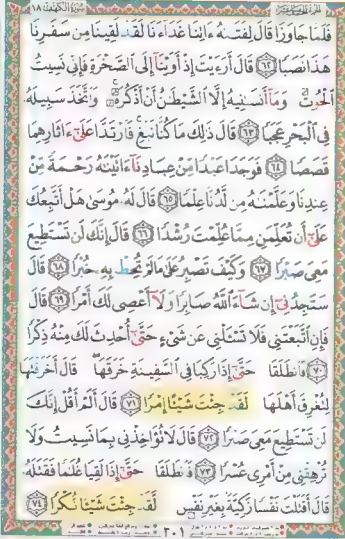 سُورَةُ الكَهْفِ ١٨
فَلَمَّا جَاوَزَا قَالَ لِفَتَىٰهُ ءَاتِنَا غَدَآءَنَا لَقَدْ لَقِينَا مِن سَفَرِنَا
هَٰذَا نَصَبًا ٦٢ قَالَ أَرَءَيْتَ إِذْ أَوَيْنَآ إِلَى ٱلصَّخْرَةِ فَإِنِّى نَسِيتُ
ٱلْحُوتَ وَمَآ أَنسَىٰنِيهُ إِلَّا ٱلشَّيْطَٰنُ أَنْ أَذْكُرَهُۥ وَٱتَّخَذَ سَبِيلَهُۥ
فِى ٱلْبَحْرِ عَجَبًا ٦٣ قَالَ ذَٰلِكَ مَا كُنَّا نَبْغِ فَٱرْتَدَّا عَلَىٰٓ ءَاثَارِهِمَا
قَصَصًا ٦٤ فَوَجَدَا عَبْدًا مِّنْ عِبَادِنَآ ءَاتَيْنَٰهُ رَحْمَةً مِّنْ
عِندِنَا وَعَلَّمْنَٰهُ مِن لَّدُنَّا عِلْمًا ٦٥ قَالَ لَهُۥ مُوسَىٰ هَلْ أَتَّبِعُكَ
عَلَىٰٓ أَن تُعَلِّمَنِ مِمَّا عُلِّمْتَ رُشْدًا ٦٦ قَالَ إِنَّكَ لَن تَسْتَطِيعَ
مَعِىَ صَبْرًا ٦٧ وَكَيْفَ تَصْبِرُ عَلَىٰ مَا لَمْ تُحِطْ بِهِۦ خُبْرًا ٦٨ قَالَ
سَتَجِدُنِىٓ إِن شَآءَ ٱللَّهُ صَابِرًا وَلَآ أَعْصِى لَكَ أَمْرًا ٦٩ قَالَ
فَإِنِ ٱتَّبَعْتَنِى فَلَا تَسْـَٔلْنِى عَن شَىْءٍ حَتَّىٰٓ أُحْدِثَ لَكَ مِنْهُ ذِكْرًا
٧٠ فَٱنطَلَقَا حَتَّىٰٓ إِذَا رَكِبَا فِى ٱلسَّفِينَةِ خَرَقَهَا قَالَ أَخَرَقْتَهَا
لِتُغْرِقَ أَهْلَهَا لَقَدْ جِئْتَ شَيْـًٔا إِمْرًا ٧١ قَالَ أَلَمْ أَقُلْ إِنَّكَ
لَن تَسْتَطِيعَ مَعِىَ صَبْرًا ٧٢ قَالَ لَا تُؤَاخِذْنِى بِمَا نَسِيتُ وَلَا
تُرْهِقْنِى مِنْ أَمْرِى عُسْرًا ٧٣ فَٱنطَلَقَا حَتَّىٰٓ إِذَا لَقِيَا غُلَٰمًا فَقَتَلَهُۥ
قَالَ أَقَتَلْتَ نَفْسًا زَكِيَّةًۢ بِغَيْرِ نَفْسٍ لَّقَدْ جِئْتَ شَيْـًٔا نُّكْرًا ٧٤
٣٠١